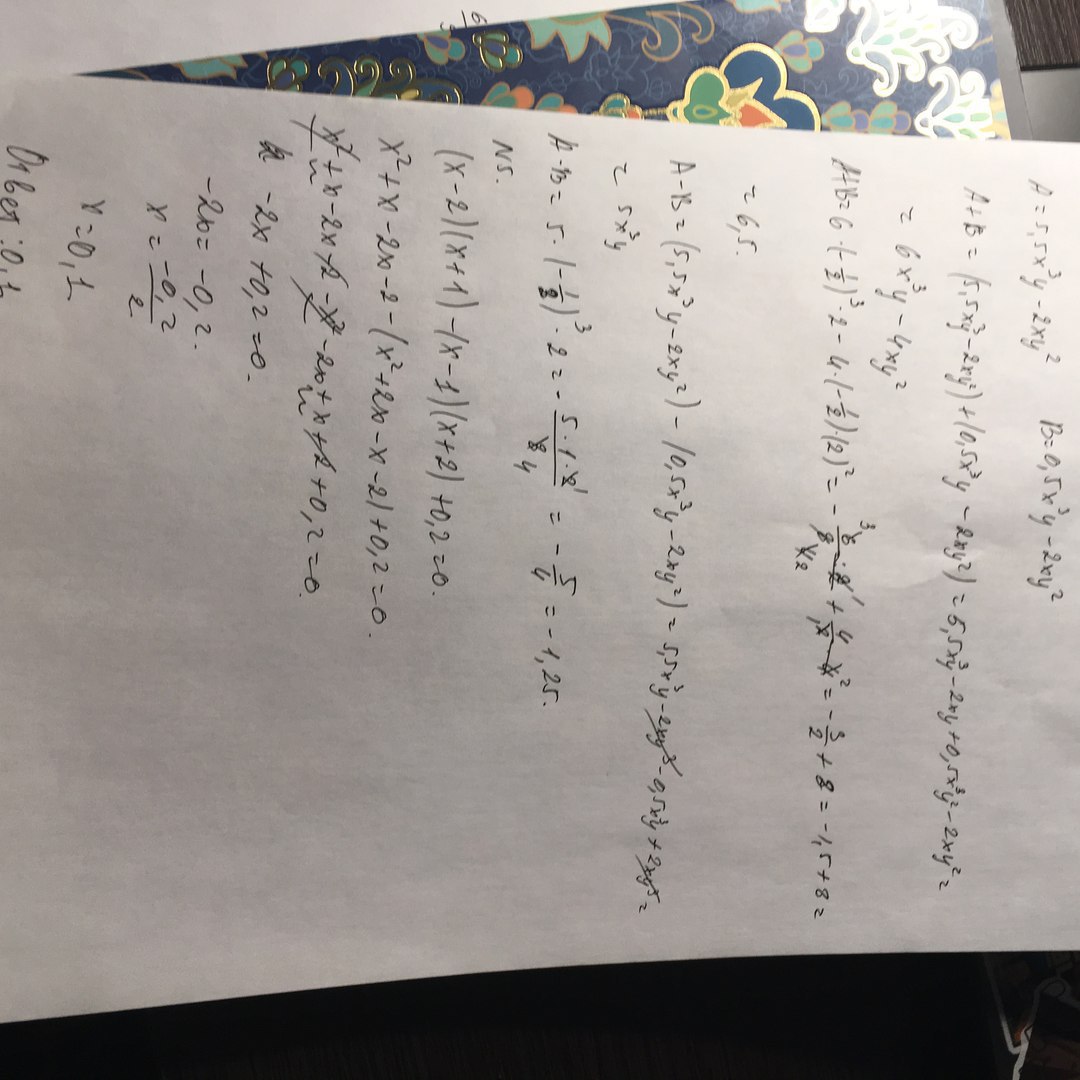 A = 5,5x³y - 2xy² B = 0,5x³y - 2xy²
A+B = (5,5x³y - 2xy²) + (0,5x³y - 2xy²) = 5,5x³y - 2xy + 0,5x³y² - 2xy² =
= 6x³y - 4xy²
A+B = 6·(-1/2)³·2 - 4·(-1/2)·(2)² = - 6·2/8 + 4/2 · 4² = - 3/2 + 8 = -1,5 + 8 =
= 6,5.
A-B = (5,5x³y - 2xy²) - (0,5x³y - 2xy²) = 5,5x³y - 2xy² - 0,5x³y + 2xy² =
= 5x³y
A-B = 5·(-1/2)³·2 = - 5·1·2/8 = - 5/4 = -1,25.
N5.
(x-2)(x+1) - (x-1)(x+2) + 0,2 = 0.
x² + x - 2x - 2 - (x² + 2x - x - 2) + 0,2 = 0.
x² + x - 2x + 2 - x² - 2x + x + 2 + 0,2 = 0.
-2x + 0,2 = 0.
-2x = -0,2.
x = -0,2/2
x = 0,1
Ответ: 0,1